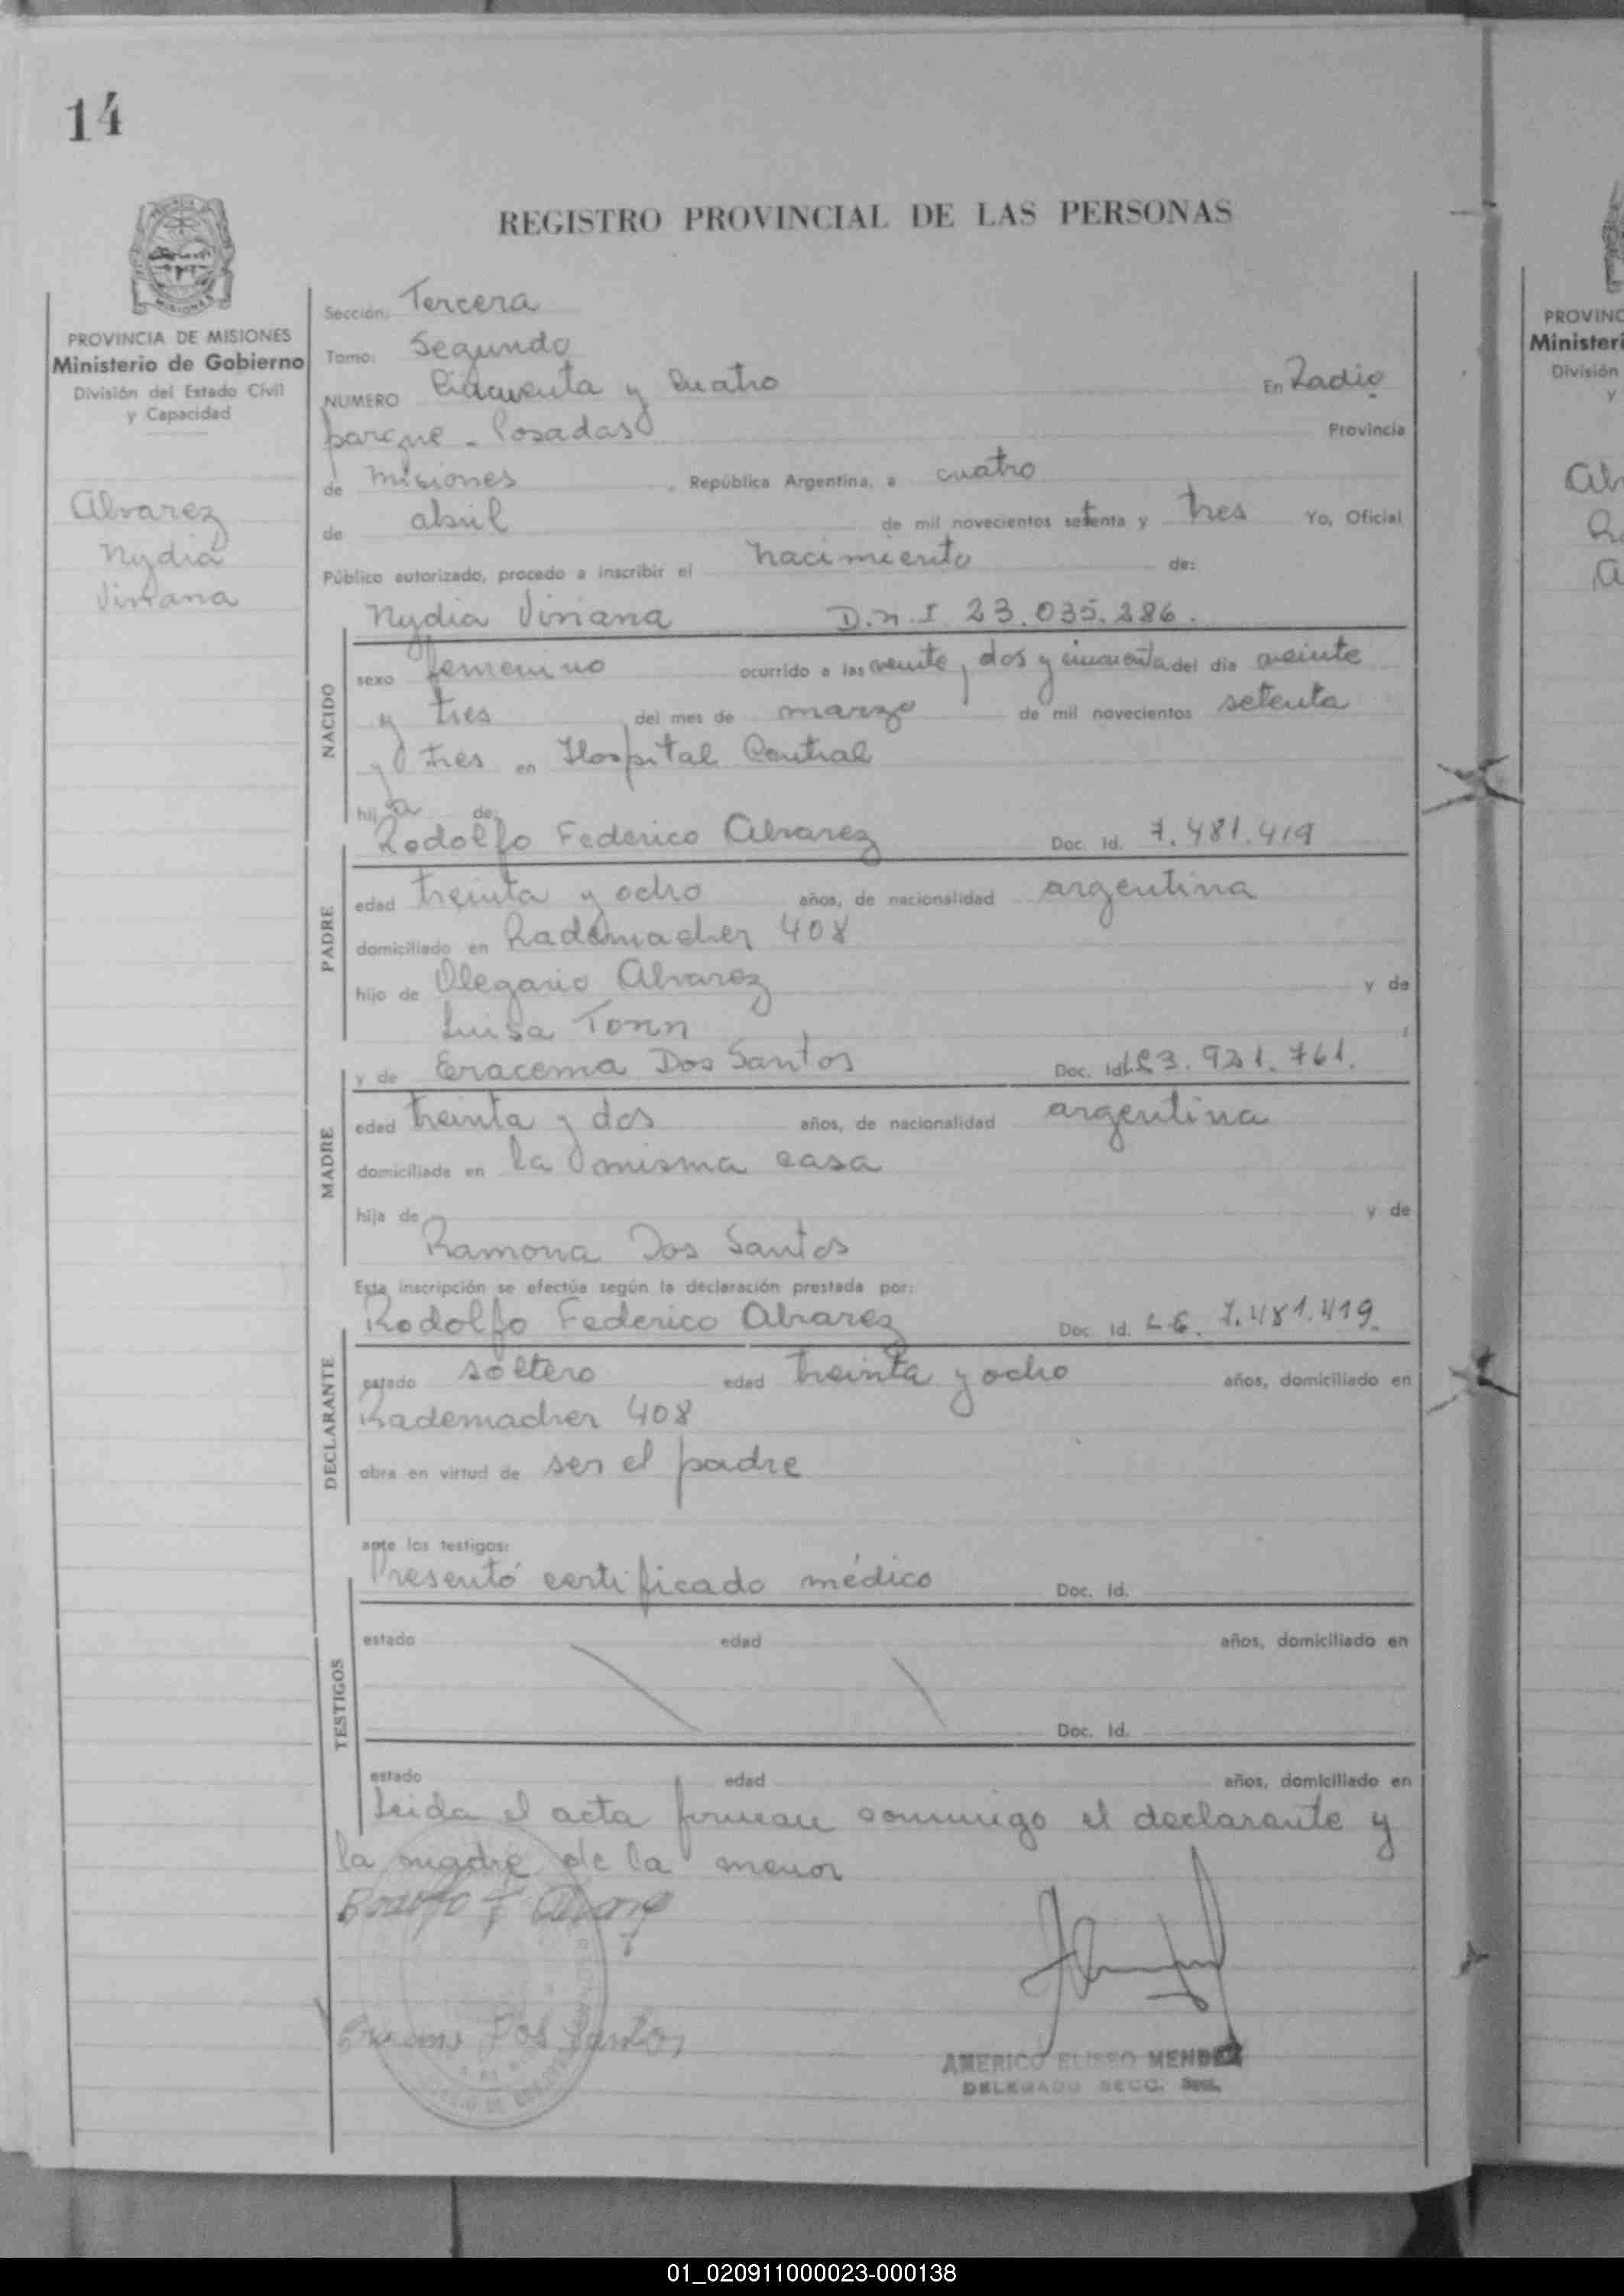 14
REGISTRO PROVINCIAL DE LAS PERSONAS
MISIONES
PROVINCIA DE MISIONES
Ministerio de Gobierno
División del Estado Civil
y Capacidad
Alvarez
Nydia
Viviana
Sección: Tercera
Tomo: Segundo
NUMERO Cincuenta y Cuatro En Radio
parque - Posadas Provincia
de Misiones, República Argentina, a cuatro
de abril de mil novecientos setenta y tres Yo, Oficial
Público autorizado, procedo a inscribir el nacimiento de:
Nydia Viviana D.N.I 23.035.286.
NACIDO
sexo femenino ocurrido a las veinte, dos y cincuenta del día veinte
y tres del mes de marzo de mil novecientos setenta
y tres en Hospital Central
hija de:
Rodolfo Federico Alvarez Doc. Id. 7.481.419
PADRE
edad treinta y ocho años, de nacionalidad argentina
domiciliado en Rademacher 408
hijo de Olegario Alvarez y de
Luisa Tonn
y de Eracema Dos Santos Doc. Id. LC 3.921.761.
MADRE
edad treinta y dos años, de nacionalidad argentina
domiciliada en la misma casa
hija de y de
Ramona Dos Santos
Esta inscripción se efectúa según la declaración prestada por:
Rodolfo Federico Alvarez Doc. Id. L.E. 7.481.419
DECLARANTE
estado soltero edad treinta y ocho años, domiciliado en
Rademacher 408
obra en virtud de ser el padre
ante los testigos:
Presentó certificado médico Doc. Id.
TESTIGOS
estado edad años, domiciliado en
Doc. Id.
estado edad años, domiciliado en
Leida el acta firman conmigo el declarante y
la madre de la menor
Rodolfo F Alvarez
Dos Santos
AMERICO ELISEO MENDEZ
DELEGADO SECC.
PROVINC
Ministeri
División
y
01_020911000023-000138